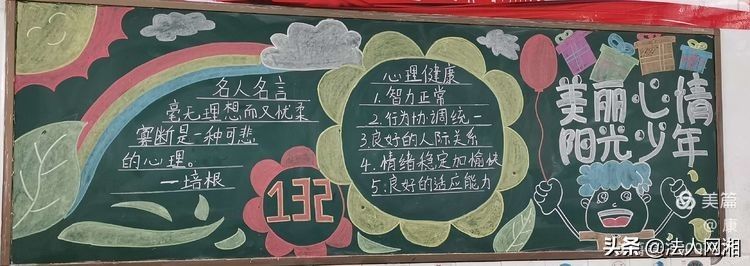 名人名言
毫无理想而又优柔
寡断是一种可悲
的心理。
—培根
132
心理健康
1.智力正常
2.行为协调统一
3.良好的人际关系
4.情绪稳定加愉快
5.良好的适应能力
美丽心情
阳光少年
美篇
@康
头条@法人网湘